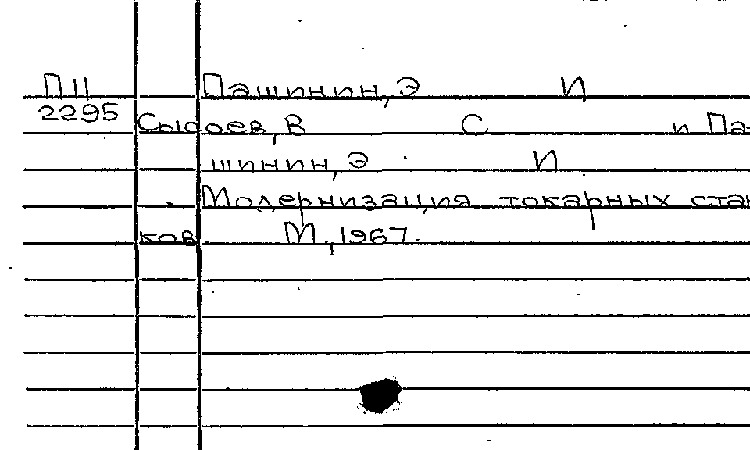 П11 Пашинин, Э И
2295
Сысоев, В С и Па-
шинин, Э И
Модернизация токарных стан
ков М, 1967.